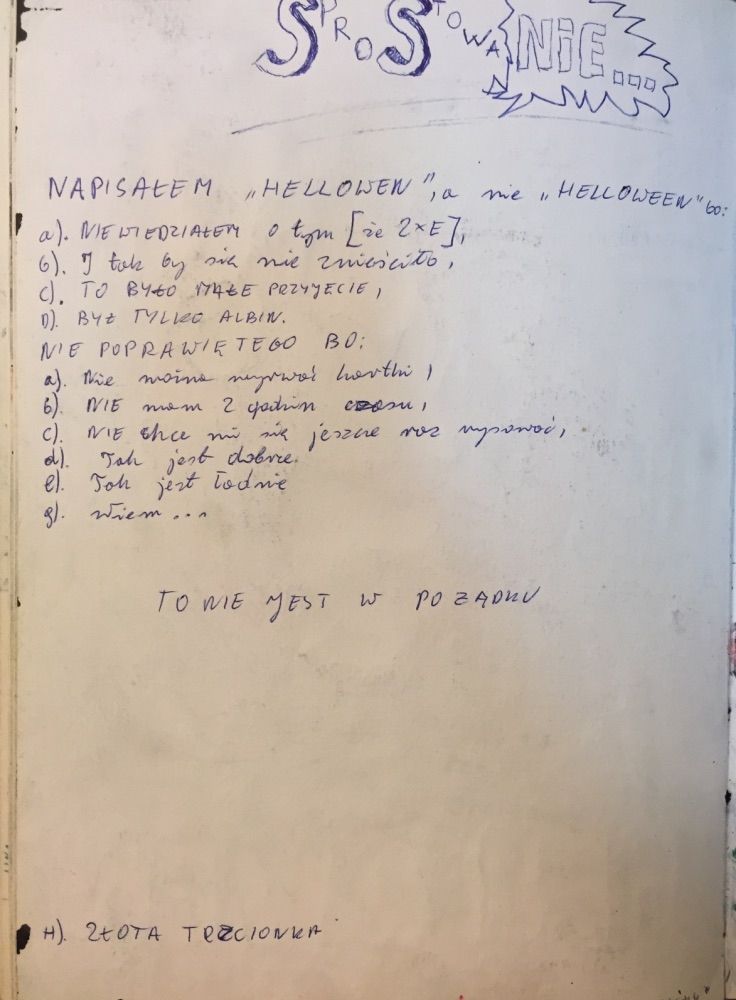 SPROSTOWANIE...
NAPISAŁEM „HELLOWEN”, a nie „HELLOWEEN” bo:
a). NIEWIEDZIAŁEM o tym [że 2xE],
b). I tak by się nie zmieściło,
c). TO BYŁO MAŁE PRZYJECIE,
D). BYŁ TYLKO ALBIN.
NIE POPRAWIĘ TEGO BO:
a). Nie można wyrwać kartki,
b). NIE mam 2 godzin czasu,
c). NIE chce mi się jeszcze raz rysować,
d). Tak jest dobrze.
e). Tak jest ładnie
g). wiem...
TO NIE JEST W POZĄDKU
H). ZŁOTA TRZCIONKA